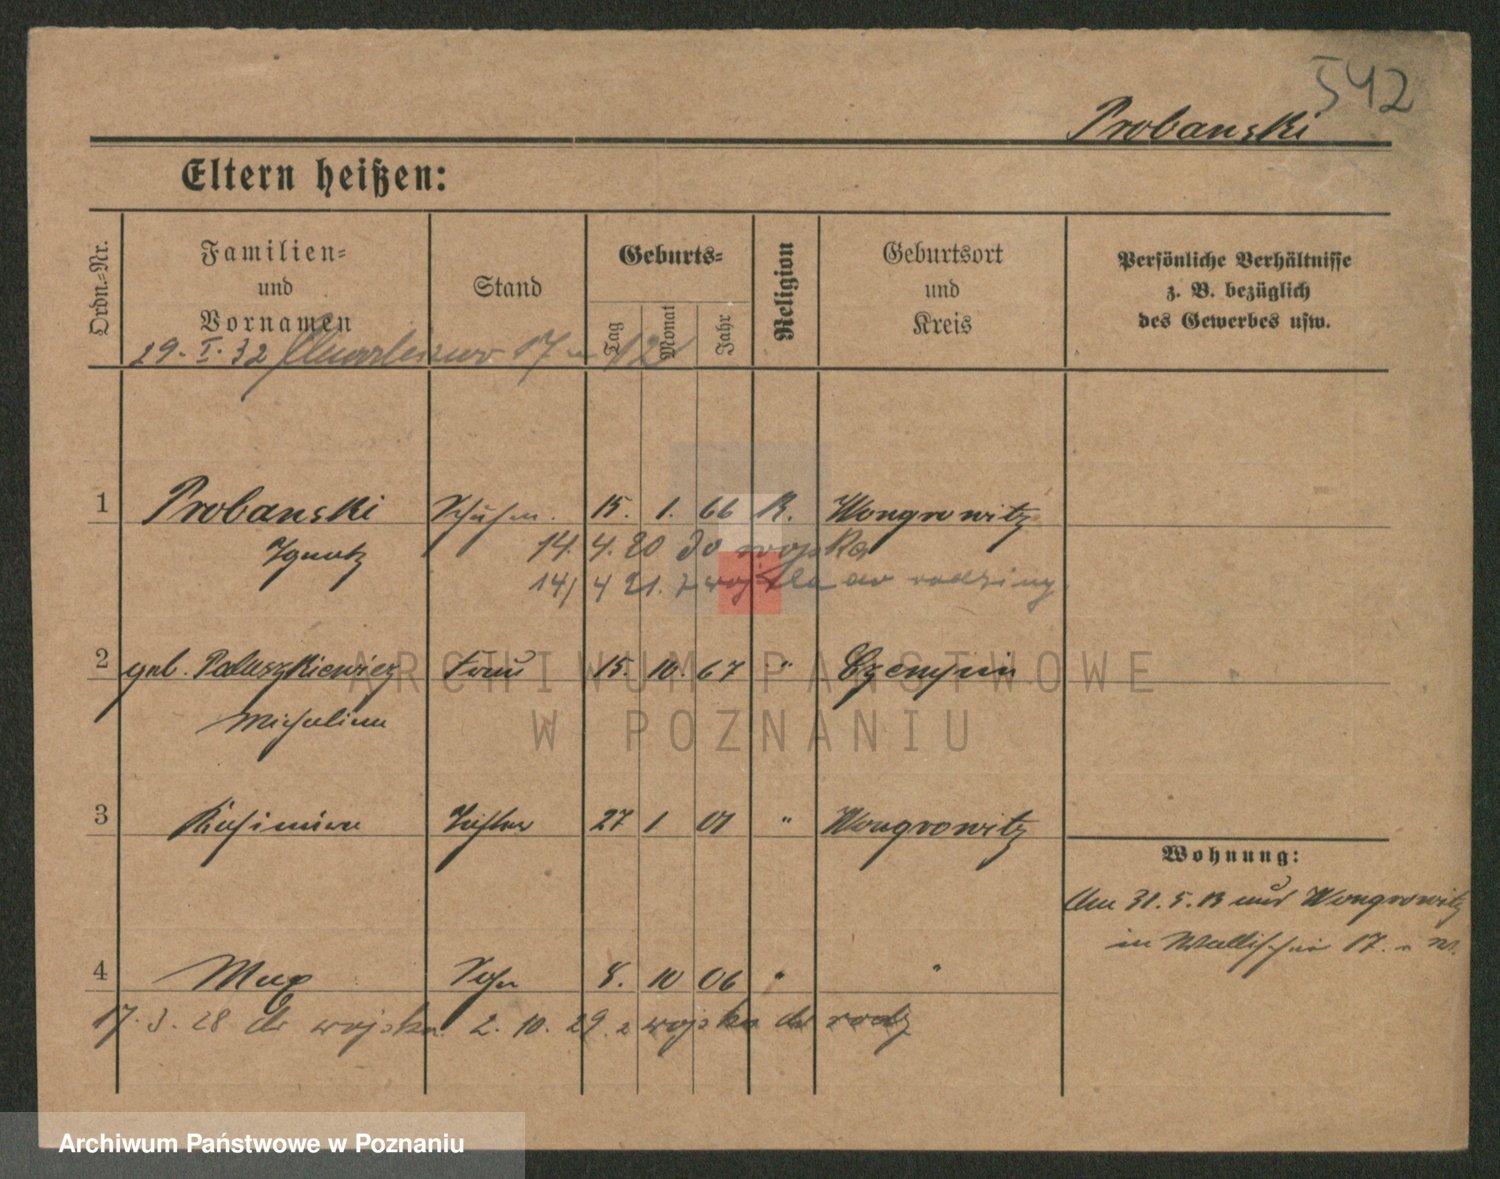 542
Probanski
Eltern heißen:
Ordn.-Nr.
Familien-
und
Vornamen
Stand
Geburts-
Tag
Monat
Jahr
Religion
Geburtsort
und
Kreis
Persönliche Verhältnisse
z. B. bezüglich
des Gewerbes usw.
29. I. 32 17 12
1 Probanski Schuhm. 15. 1. 66 K. Wongrowitz
Ignatz 14. 4. 20 do wojska
14/ 4 21. z wojska do rodziny
2 geb. Paluszkiewicz Frau 15. 10. 67 " Czempin
Michalina
3 Kasimira Tochter 27 1 01 " Wongrowitz
Wohnung:
Am 31. 5. 13 aus Wongrowitz
in Wallischei 17.
4 Max Sohn 8. 10 06 " "
17. 3. 28 do wojska 2. 10. 29. z wojska do rodz
ARCHIWUM PAŃSTWOWE
W POZNANIU
Archiwum Państwowe w Poznaniu